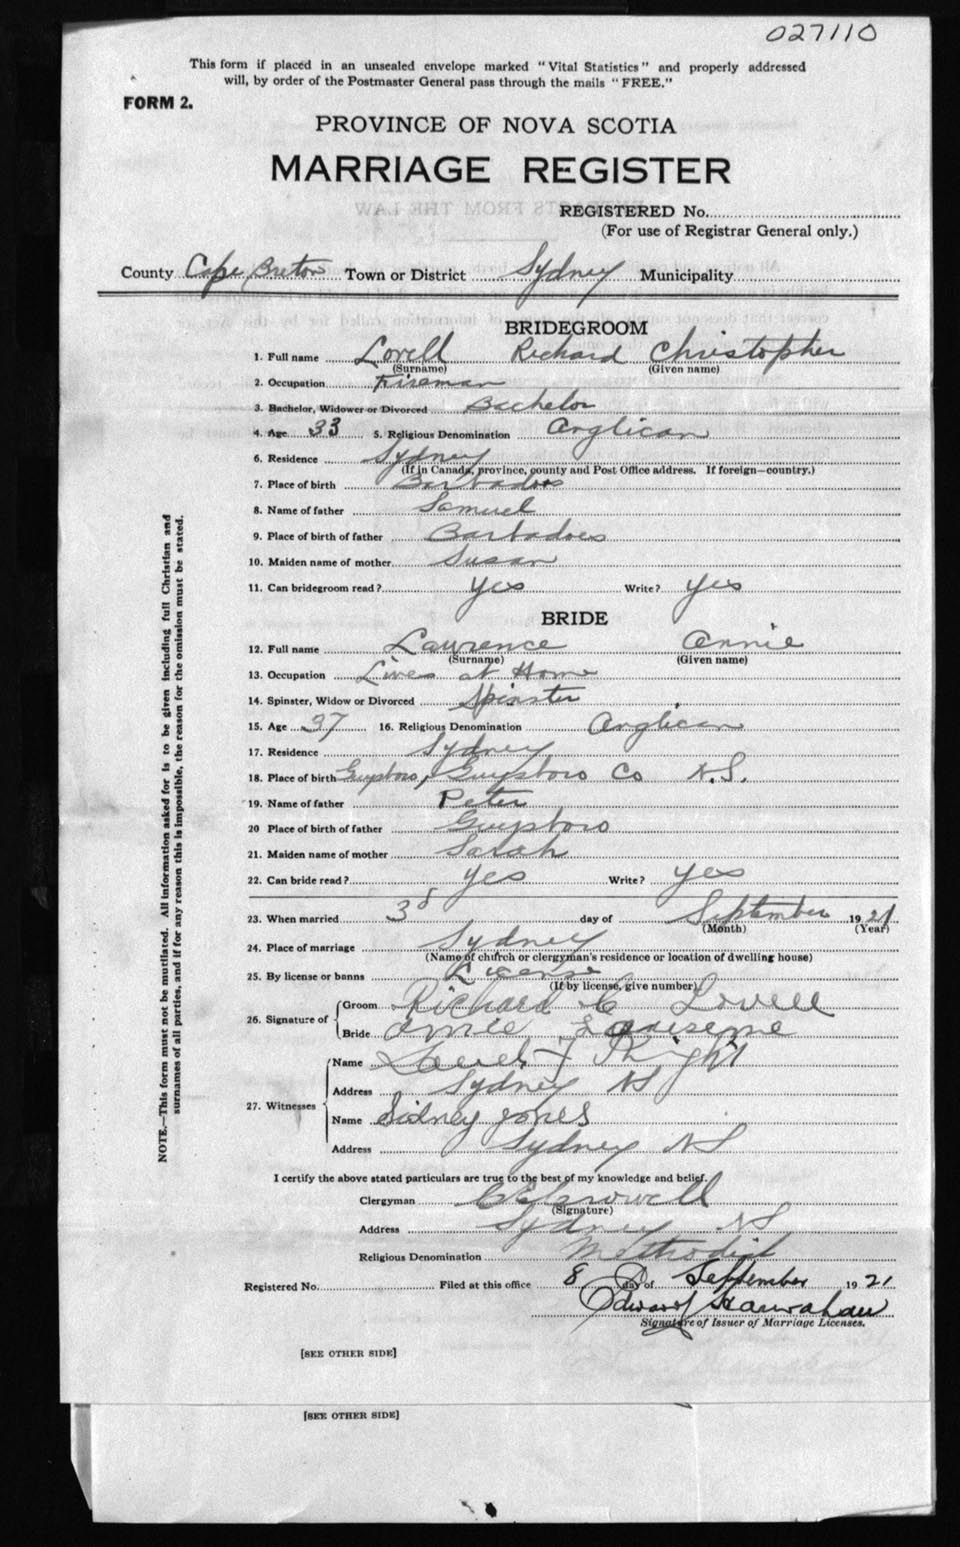 027110
This form if placed in an unsealed envelope marked "Vital Statistics" and properly addressed
will, by order of the Postmaster General pass through the mails "FREE."
FORM 2.
PROVINCE OF NOVA SCOTIA
MARRIAGE REGISTER
REGISTERED No.
(For use of Registrar General only.)
County Cape Breton Town or District Sydney Municipality
BRIDEGROOM
1. Full name Lovell Richard Christopher
(Surname) (Given name)
2. Occupation Fireman
3. Bachelor, Widower or Divorced Bachelor
4. Age 33 5. Religious Denomination Anglican
6. Residence Sydney
(If in Canada, province, county and Post Office address. If foreign—country.)
7. Place of birth Barbados
8. Name of father Samuel
9. Place of birth of father Barbadoes
10. Maiden name of mother Susan
11. Can bridegroom read? Yes Write? Yes
BRIDE
12. Full name Lawrence Annie
(Surname) (Given name)
13. Occupation Lives at Home
14. Spinster, Widow or Divorced Spinster
15. Age 37 16. Religious Denomination Anglican
17. Residence Sydney
18. Place of birth Guysboro, Guysboro Co N.S.
19. Name of father Peter
20 Place of birth of father Guysboro
21. Maiden name of mother Sarah
22. Can bride read? Yes Write? Yes
23. When married 3d day of September 1921
(Month) (Year)
24. Place of marriage Sydney
(Name of church or clergyman's residence or location of dwelling house)
25. By license or banns License
(If by license, give number)
26. Signature of Groom Richard C Lovell
Bride Annie
27. Witnesses Name
Address Sydney NS
Name Sidney Jones
Address Sydney NS
I certify the above stated particulars are true to the best of my knowledge and belief.
Clergyman
(Signature)
Address Sydney NS
Religious Denomination Methodist
Registered No. Filed at this office 8 day of September 1921
Edward Hanrahan
Signature of Issuer of Marriage Licenses.
[SEE OTHER SIDE]
[SEE OTHER SIDE]
NOTE.—This form must not be mutilated. All information asked for is to be given including full Christian and
surnames of all parties, and if for any reason this is impossible, the reason for the omission must be stated.